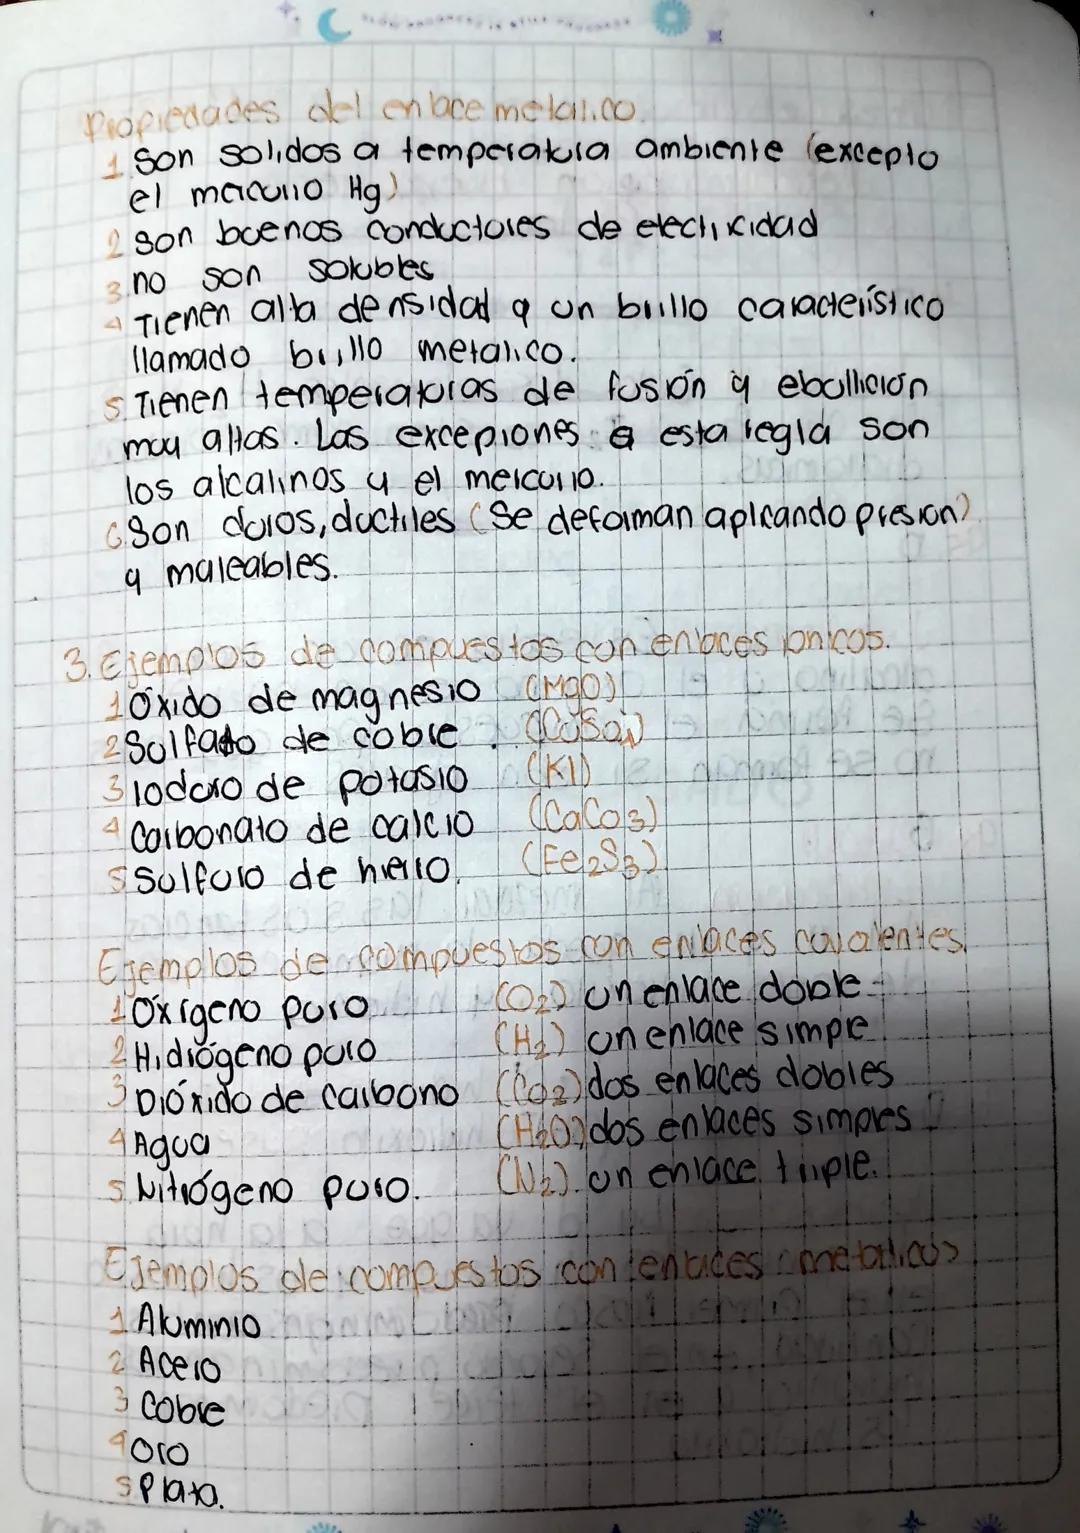 Propiedades del enlace metalico.
1. Son solidos a temperatura ambiente (excepto
el mercurio Hg)
2 Son buenos conductores de electricidad
3. no son solubles
4 Tienen alta densidad y un brillo característico
llamado brillo metalico.
5. Tienen temperaturas de fusión y ebullición
muy altas. Las excepciones a esta regla son
los alcalinos y el mercurio.
6 Son duros, ductiles (Se deforman aplicando presion)
y maleables.
3. Ejemplos de compuestos con enlaces ionicos.
1 Óxido de magnesio (MgO)
2 Sulfato de cobre. (CuSO4)
3 Ioduro de potasio (KI)
4 Carbonato de calcio (CaCo3)
5 Sulfuro de hierro. (Fe2S3)
Ejemplos de compuestos con enlaces covalentes.
1 Oxígeno puro (O2) un enlace doble
2 Hidrógeno puro (H2) un enlace simple
3 Dióxido de carbono (Co2) dos enlaces dobles
4 Agua (H2O) dos enlaces simples
5. Nitrógeno puro. (N2). un enlace triple.
Ejemplos de compuestos con enlaces metalicos
1 Aluminio
2 Acero
3 Cobre
4 Oro
5 Plata.